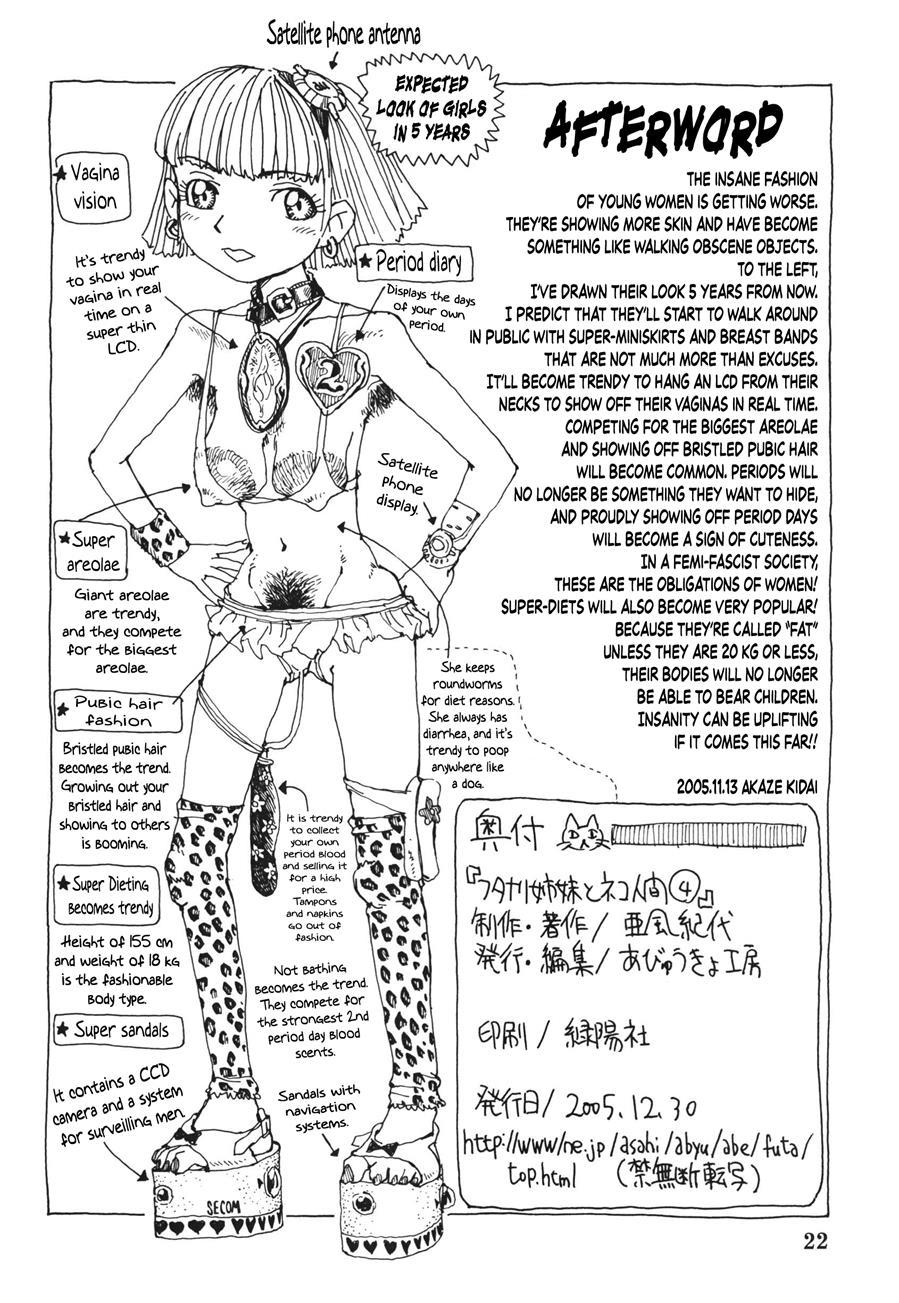 Satellite phone antenna
EXPECTED
LOOK OF GIRLS
IN 5 YEARS
AFTERWORD
THE INSANE FASHION
OF YOUNG WOMEN IS GETTING WORSE.
THEY'RE SHOWING MORE SKIN AND HAVE BECOME
SOMETHING LIKE WALKING OBSCENE OBJECTS.
TO THE LEFT,
I'VE DRAWN THEIR LOOK 5 YEARS FROM NOW.
I PREDICT THAT THEY'LL START TO WALK AROUND
IN PUBLIC WITH SUPER-MINISKIRTS AND BREAST BANDS
THAT ARE NOT MUCH MORE THAN EXCUSES.
IT'LL BECOME TRENDY TO HANG AN LCD FROM THEIR
NECKS TO SHOW OFF THEIR VAGINAS IN REAL TIME.
COMPETING FOR THE BIGGEST AREOLAE
AND SHOWING OFF BRISTLED PUBIC HAIR
WILL BECOME COMMON. PERIODS WILL
NO LONGER BE SOMETHING THEY WANT TO HIDE,
AND PROUDLY SHOWING OFF PERIOD DAYS
WILL BECOME A SIGN OF CUTENESS.
IN A FEMI-FASCIST SOCIETY,
THESE ARE THE OBLIGATIONS OF WOMEN!
SUPER-DIETS WILL ALSO BECOME VERY POPULAR!
BECAUSE THEY'RE CALLED "FAT"
UNLESS THEY ARE 20 KG OR LESS,
THEIR BODIES WILL NO LONGER
BE ABLE TO BEAR CHILDREN.
INSANITY CAN BE UPLIFTING
IF IT COMES THIS FAR!!
2005.11.13 AKAZE KIDAI
★Vagina
vision
It's trendy
to show your
vagina in real
time on a
super thin
LCD.
★Period diary
Displays the days
of your own
period.
2
Satellite
phone
display.
★Super
areolae
Giant areolae
are trendy,
and they compete
for the biggest
areolae.
★Pubic hair
fashion
Bristled pubic hair
becomes the trend.
Growing out your
bristled hair and
showing to others
is booming.
She keeps
roundworms
for diet reasons.
She always has
diarrhea, and it's
trendy to poop
anywhere like
a dog.
It is trendy
to collect
your own
period blood
and selling it
for a high
price.
Tampons
and napkins
go out of
fashion.
★Super Dieting
becomes trendy
Height of 155 cm
and weight of 18 kg
is the fashionable
body type.
Not bathing
becomes the trend.
They compete for
the strongest 2nd
period day blood
scents.
★ Super sandals
It contains a CCD
camera and a system
for surveilling men.
Sandals with
navigation
systems.
SECOM
奥付
『フタナリ姉妹とネコ人間④』
制作・著作/ 亜風紀代
発行・編集/ あびゅうきょ工房
印刷/ 緑陽社
発行日/ 2005.12.30
http://www/ne.jp/asahi/abyu/abe/futa/
top.html (禁無断転写)
22